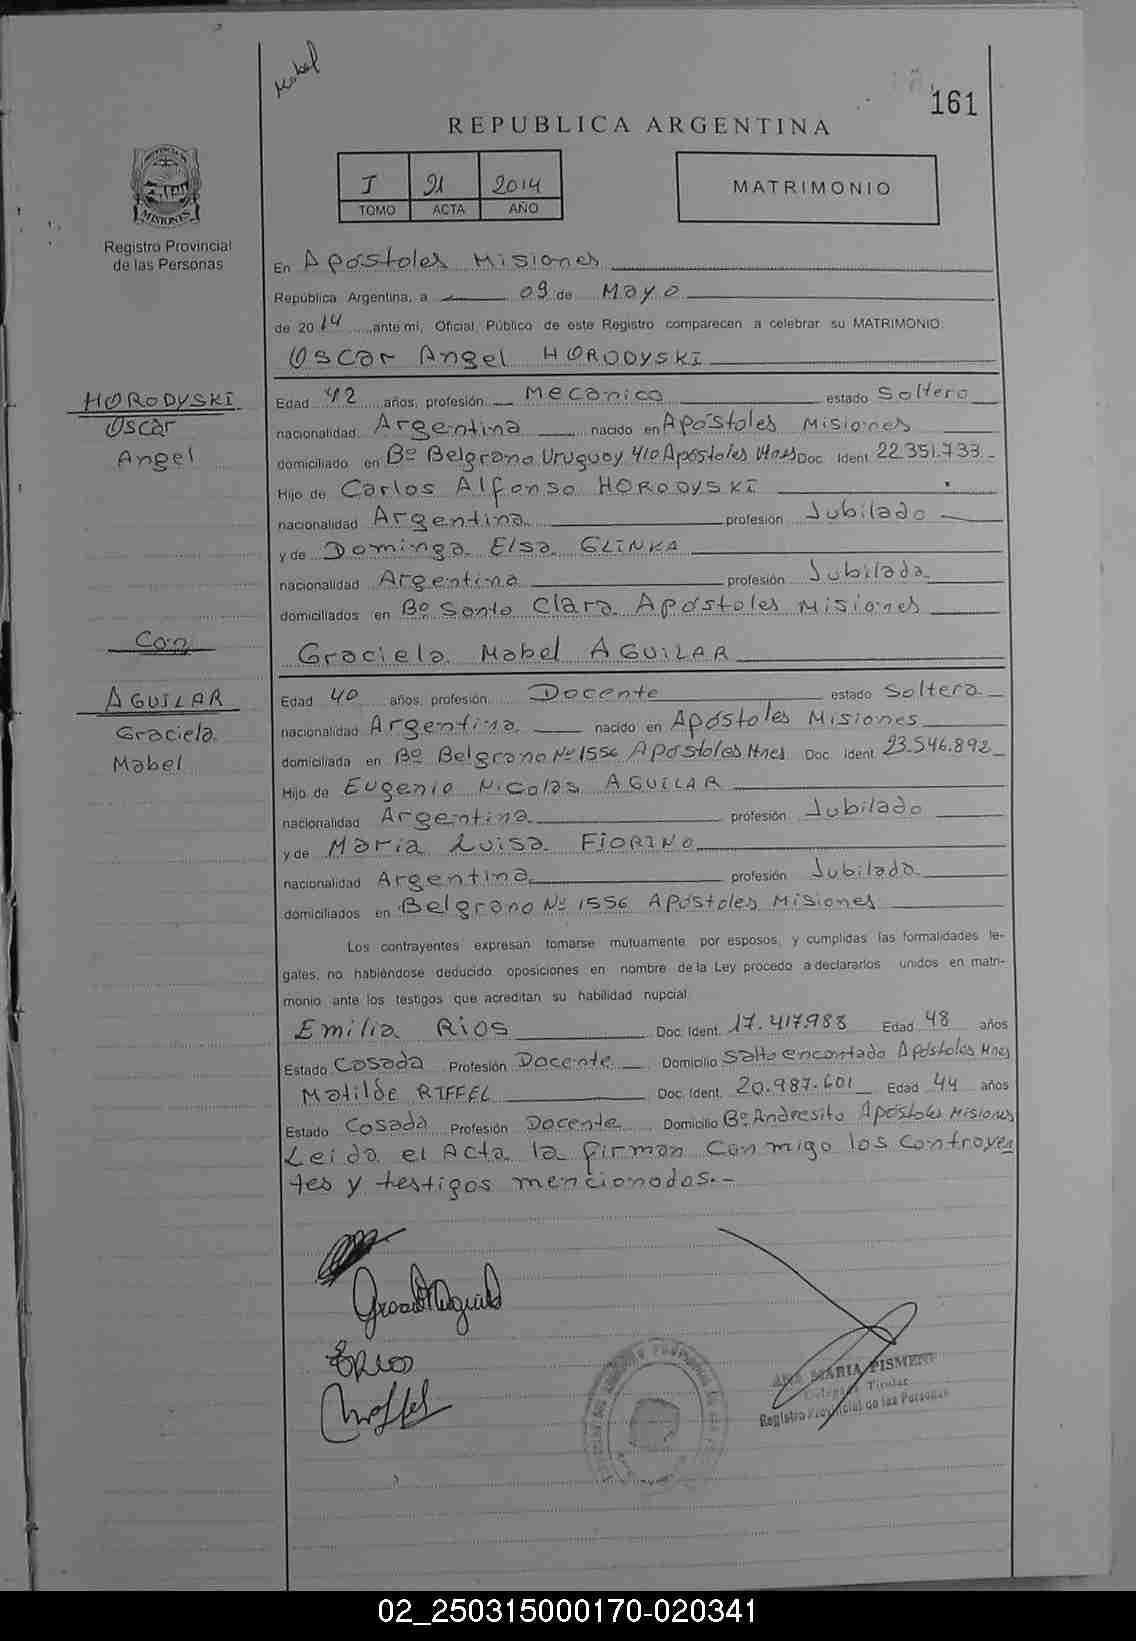 Mabel
161
REPUBLICA ARGENTINA
I 21 2014
TOMO ACTA AÑO
MATRIMONIO
PROVINCIA DE MISIONES
Registro Provincial
de las Personas
En Apóstoles Misiones
República Argentina, a 09 de Mayo
de 2014, ante mi, Oficial Público de este Registro comparecen a celebrar su MATRIMONIO:
Oscar Angel HORODYSKI
HORODYSKI
Oscar
Angel
Edad 42 años, profesión Mecanico estado Soltero
nacionalidad Argentina nacido en Apóstoles Misiones
domiciliado en Bº Belgrano Uruguay 410 Apóstoles Mnes Doc. Ident. 22.351.733.-
Hijo de Carlos Alfonso HORODYSKI
nacionalidad Argentina profesión Jubilado
y de Dominga Elsa GLINKA
nacionalidad Argentina profesión Jubilada
domiciliados en Bº Santa Clara Apóstoles Misiones
Con
Graciela Mabel AGUILAR
AGUILAR
Graciela
Mabel
Edad 40 años, profesión Docente estado Soltera
nacionalidad Argentina nacido en Apóstoles Misiones
domiciliada en Bº Belgrano Nº 1556 Apóstoles Mnes Doc. Ident. 23.546.892
Hijo de Eugenio Nicolas AGUILAR
nacionalidad Argentina profesión Jubilado
y de Maria Luisa FIORINO
nacionalidad Argentina profesión Jubilada
domiciliados en Belgrano Nº 1556 Apóstoles Misiones
Los contrayentes expresan tomarse mutuamente por esposos, y cumplidas las formalidades le-
gales, no habiéndose deducido oposiciones en nombre de la Ley procedo a declararlos unidos en matri-
monio ante los testigos que acreditan su habilidad nupcial.
Emilia RIOS Doc. Ident. 17.417.988 Edad 48 años
Estado Casada Profesión Docente Domicilio Salto encantado Apóstoles Mnes
Matilde RIFFEL Doc. Ident. 20.987.601 Edad 44 años
Estado Casada Profesión Docente Domicilio Bº Andresito Apóstoles Misiones
Leida el Acta la firman conmigo los contrayen
tes y testigos mencionados.-
ANA MARIA PISMENI
Delegada Titular
Registro Provincial de las Personas
02_250315000170-020341